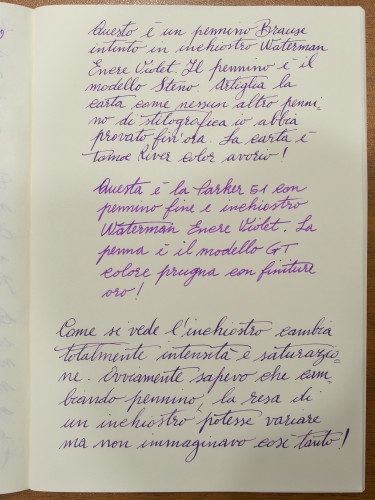 Questo è un pennino Brause
intinto in inchiostro Waterman
Encre Violet. Il pennino è il
modello Steno. Artiglia la
carta come nessun altro penni-
no di stilografica io abbia
provato fin'ora. La carta è
Tomoe River color avorio!
Questa è la Parker 51 con
pennino fine e inchiostro
Waterman Encre Violet. La
penna è il modello GT
colore prugna con finiture
oro!
Come si vede l'inchiostro cambia
totalmente intensità e saturazzio-
ne. Ovviamente sapevo che cam-
biando pennino, la resa di
un inchiostro potesse variare
ma non immaginavo così tanto!